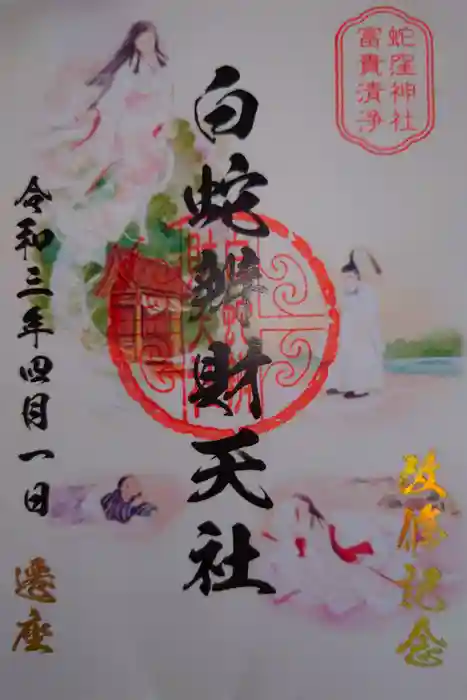 蛇窪神社
富貴清浄
白蛇辨財天社
改修記念
令和三年四月一日
遷座